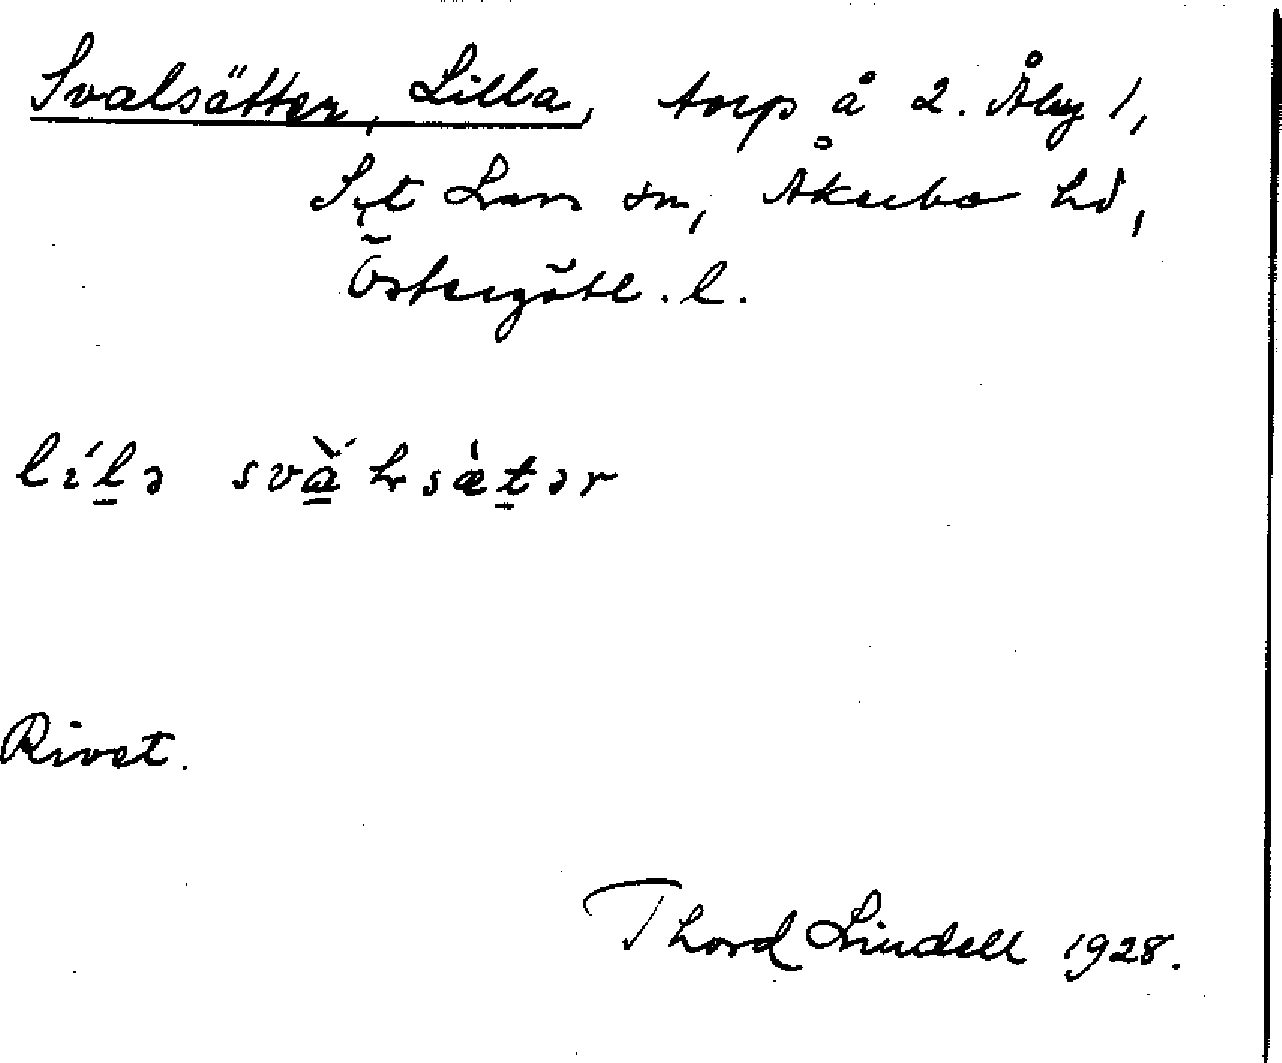 Svalsätter, Lilla, torp å 2. Åby 1,
S:t Lars sn, Åkerbo hd,
Östergötl. l.
lílə svǎ́ɫsæ̀tər
Rivet.
Thord Lindell 1928.